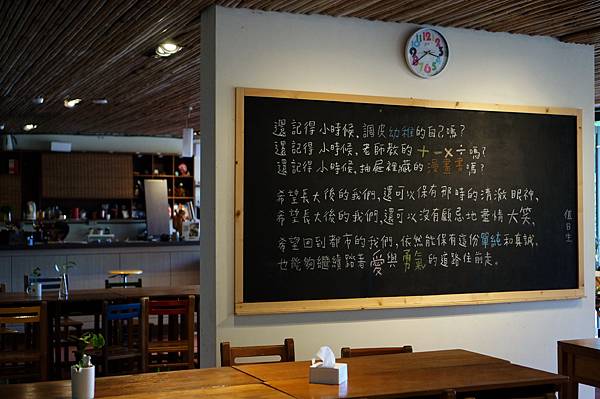 還記得小時候，調皮幼稚的自己嗎？
還記得小時候，老師教的＋－×÷嗎？
還記得小時候，抽屜裡藏的漫畫書嗎？
希望長大後的我們，還可以保有那時的清澈眼神、
希望長大後的我們，還可以沒有顧忌地盡情大笑、
希望回到都市的我們，依然能保有這份單純和真誠，
也能夠繼續踏著愛與勇氣的道路往前走。
值日生